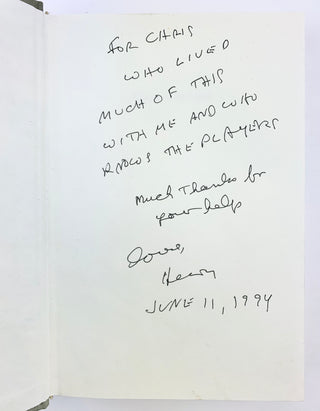 FOR CHRIS
WHO LIVED
MUCH OF THIS
WITH ME AND WHO
KNOWS THE PLAYERS
Much Thanks for
your help
Love,
Henry
JUNE 11, 1994